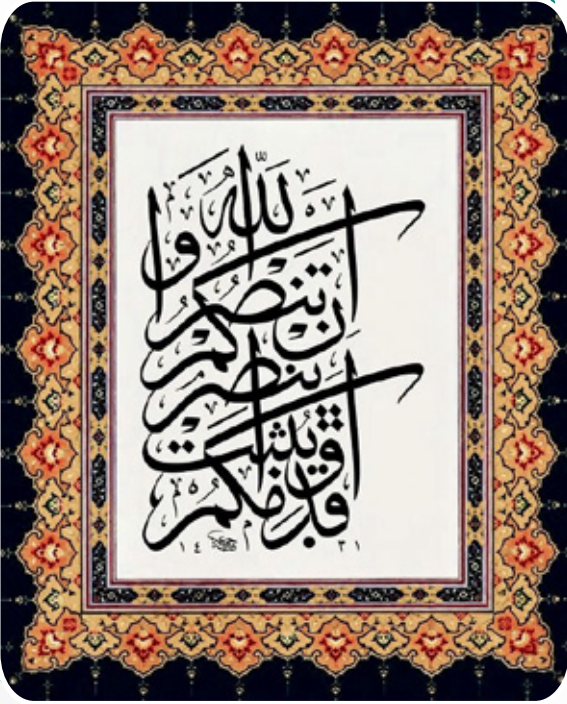 ان تنصروا الله
ينصركم
ويثبت
اقدامكم
١٤ ٣١